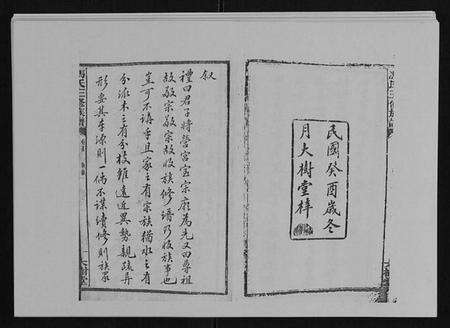 民國癸酉歲冬
月大樹堂梓
叙
禮曰君子將營宮室宗廟為先又曰尊祖
故敬宗敬宗故收族修譜乃收族事也
豈可不語乎且家之有宗族猶水之有
分派木之有分枝雖遠近異勢親疏弄
形要其本源則一倘不謀續修則族眾
馮氏三修族譜